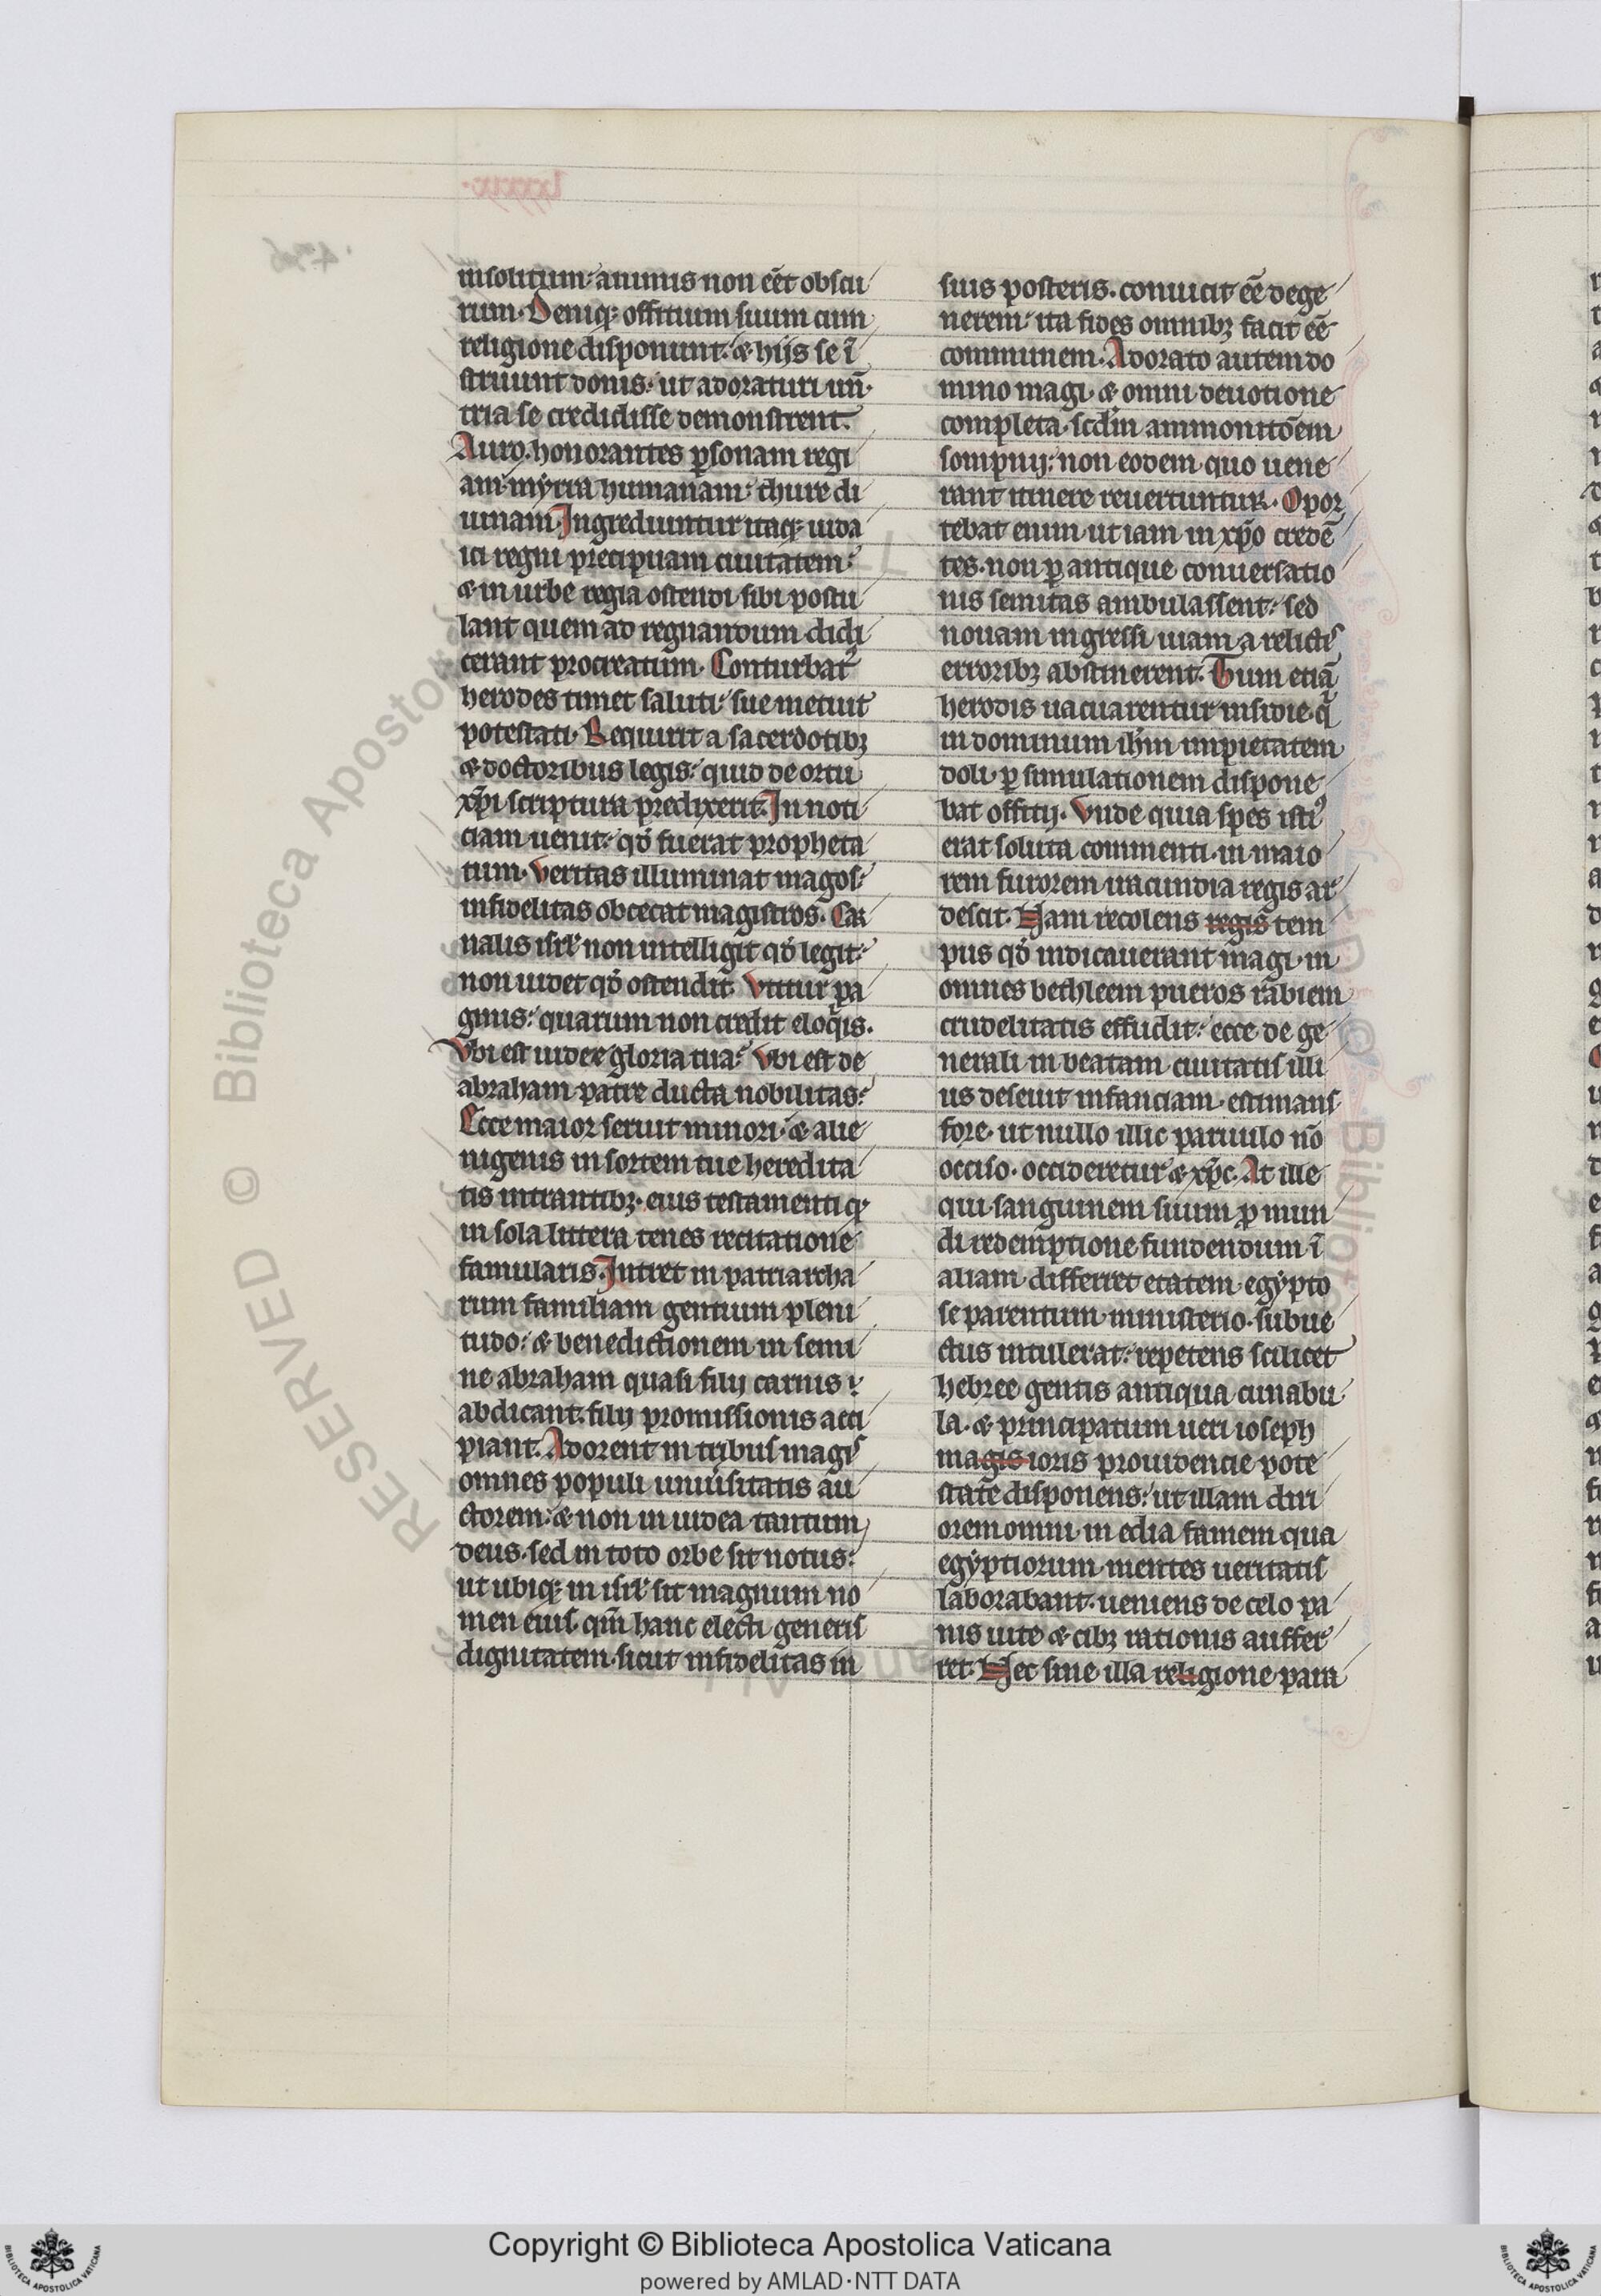 insolitum: animis non eēt obscu
rum. Deniq; offitium suum cum
religione disponunt: & hijs se ī
struunt donis: ut adoraturi un̄.
tria se credidisse demonstrent.
Auro. honorantes ꝑsonam regi
am. myrra humanam: thure di
uinam. Ingrediuntur itaq; iuda
ici regni precipuam ciuitatem:
& in urbe regia ostendi sibi postu
lant quem ad regnandum didi
cerant procreatum. Conturbat᷑
herodes timet saluti: sue metuit
potestati. Requirit a sacerdotibꝫ
& doctoribus legis: quid de ortu
xp̄i scriptura predixerit. In noti
ciam uenit: qđ fuerat propheta
tum. Veritas illuminat magos:
infidelitas obcecat magistros. Car
nalis isrł non intelligit qđ legit:
non uidet qđ ostendit. Vtitur pa
ginis: quarum non credit eloq̄is.
Vbi est iudee gloria tua: Vbi est de
abraham patre ducta nobilitas:
Ecce maior seruit minori: & alie
nigenis in sortem tue heredita
tis intrantibꝫ. eius testamenti q̄
in sola littera tenes recitatione
famularis. Intret in patriarcha
rum familiam gentium pleni
tudo: & benedictionem in semi
ne abraham quasi filij carnis:
abdicant. filij promissionis acci
piant. Adorent in tribus magis
omnes populi uniu̾sitatis au
ctorem: & non in iudea tantum
deus. sed in toto orbe sit notus:
ut ubiq; in isrł sit magnum no
men eius. qm̄ hanc electi generis
dignitatem. sicut infidelitas in
suis posteris. conuicit eē dege
nerem: ita fides omnibꝫ facit eē
communem. Adorato autem do
mino magi. & omni deuotione
completa. scd̄m ammonitōem
sompnij: non eodem quo uene
rant itinere reuertuntur. Opor
tebat enim ut iam in xp̄o credē
tes. non ꝑ antique conuersatio
nis semitas ambulassent: sed
nouam ingressi uiam a relictis
erroribꝫ abstinerent. Tum etiā
herodis uacuarentur insidie. q̄
in dominum ih̄m impietatem
doli. ꝑ simulationem dispone
bat offitij. Vnde quia spes isti᷒
erat soluta commenti. in maio
rem furorem iracundia regis ar
descit. Nam recolens regis tem
pus qđ indicauerant magi. in
omnes bethleem pueros rabiem
crudelitatis effudit: ecce de ge
nerali in beatam ciuitatis illi
us deseuit infanciam. estimans
fore. ut nullo illic paruulo nō
occiso. occideretur & xp̄c. At ille
qui sanguinem suum ꝓ mun
di redemptione fundendum. ī
aliam differret etatem. egypto
se parentum ministerio. subue
ctus intulerat: repetens scilicet
hebree gentis antiqua cunabu
la. & principatum ueri ioseph
magis ioris prouidencie pote
state disponens: ut illam diri
orem omni in edia famem qua
egyptiorum mentes ueritatis
laborabant. ueniens de celo pa
nis uite & cibꝫ rationis auffer
ret. Nec sine illa religione para
Copyright © Biblioteca Apostolica Vaticana
powered by AMLAD·NTT DATA